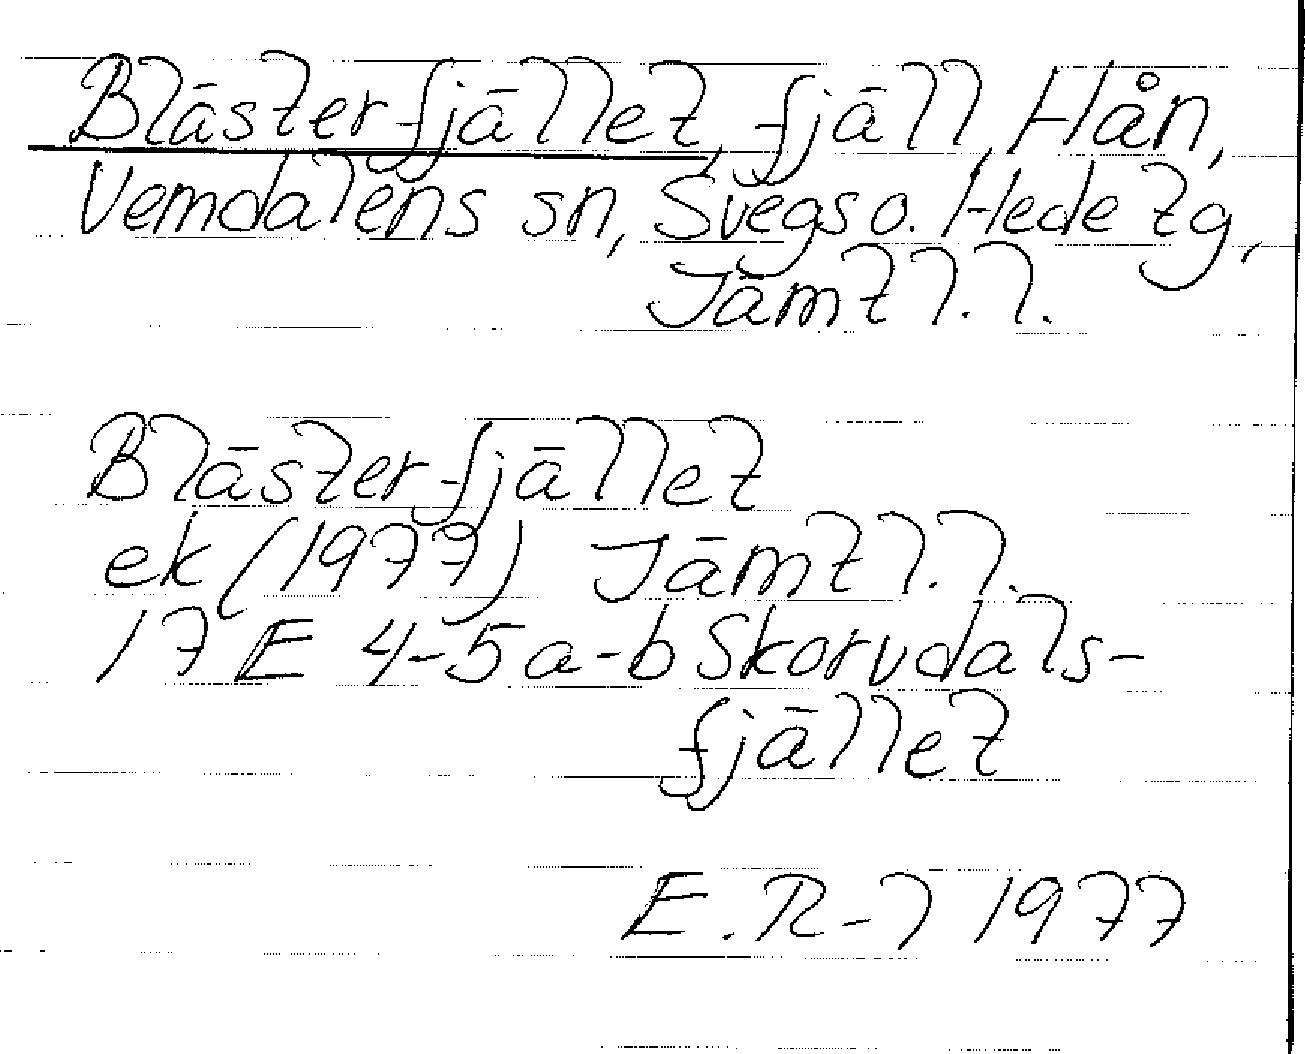 Blästerfjället, fjäll, Hån,
Vemdalens sn, Svegs o. Hede tg,
Jämtl.l.
Blästerfjället
ek (1977) Jämtl.l.
17 E 4-5 a-b Skorvdals-
fjället
E. R-l 1977